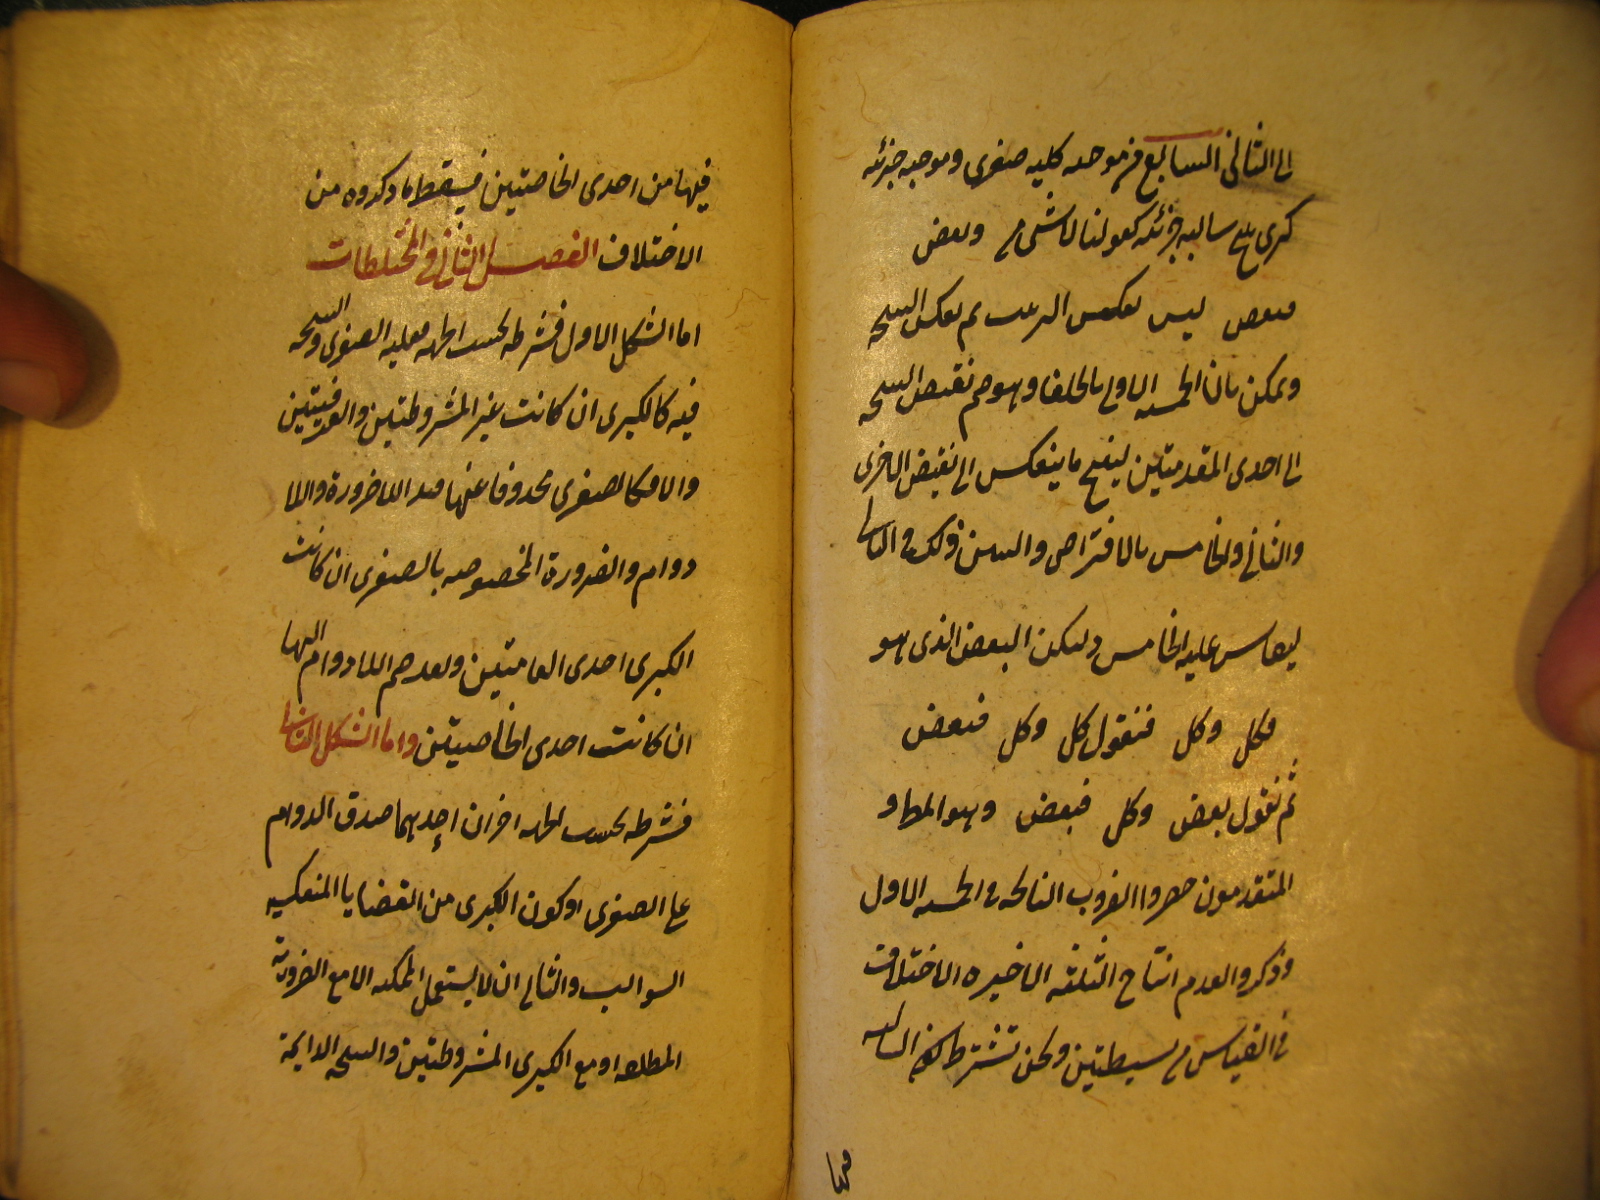 الى الثانى السابع من موجبه كليه صغرى وموجبه جزئيه
كبرى ينتج سالبه جزئيه كقولنا لا شى م وبعض
فبعض ليس بعكس الترتيب ثم بعكس النتيجه
ويمكن بيان الخمسه الاول بالخلف وهو ضم نقيض النتيجه
الى احدى المقدمتين لينتج ما ينعكس الى نقيض الاخرى
والثانى والخامس بالافتراض ولنبين ذلك فى الثانى
ليقاس عليه الخامس وليكن البعض الذى هو
فكل وكل فنقول كل وكل فبعض
ثم نقول بعض وكل فبعض وهو المط و
المتقدمون حصروا الضروب الناتجه فى الخمسه الاول
وذكروا لعدم انتاج الثلثه الاخيره الاختلاف
فى القياس م بسيطتين ونحن نشترط كون السالبه
فيها
فيها من احدى الخاصتين فيسقط ما ذكروه من
الاختلاف الفصل الثانى فى المختلطات
اما الشكل الاول فشرطه بحسب الجهه فعليه الصغرى والنتيجه
فيه كالكبرى ان كانت غير المشروطتين والعرفيتين
والا فكالصغرى محذوفا عنها قيد اللاضرورة واللا
دوام والضرورة المخصوصه بالصغرى ان كانت
الكبرى احدى العامتين وبعد ضم اللادوام اليها
ان كانت احدى الخاصيتين واما الشكل الثانى
فشرطه بحسب الجهه امران احدهما صدق الدوام
على الصغرى او كون الكبرى من القضايا المنعكسه
السوالب والثانى ان لا يستعمل الممكنه الا مع الضرورية
المطلقه او مع الكبرى المشروطتين والنتيجه الدايمة